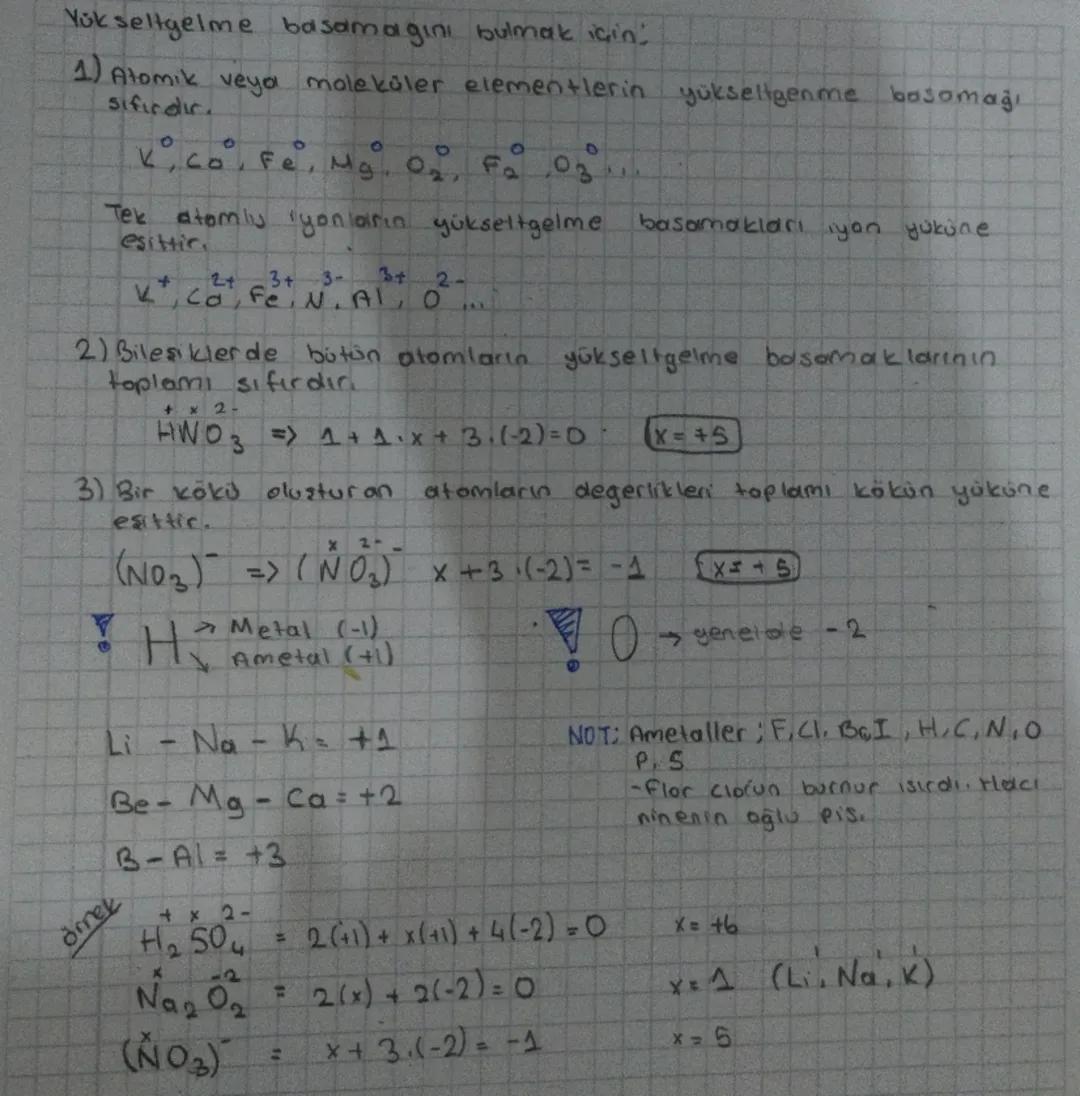 Yükseltgelme basamagını bulmak için:
1) Atomik veya moleküler elementlerin yükseltgenme basamağı
sıfırdır.
K⁰, Ca⁰, Fe⁰, Mg⁰, O₂⁰, F₂⁰, O₃⁰...
Tek atomlu iyonların yükseltgelme basamakları iyon yüküne
eşittir.
K⁺, Ca²⁺, Fe³⁺, N³⁻, Al³⁺, O²⁻...
2) Bileşiklerde bütün atomların yükseltgelme basamaklarının
toplamı sıfırdır.
+ x 2-
HNO₃ => 1 + 1.x + 3.(-2)=0 x = +5
3) Bir kökü oluşturan atomların değerlikleri toplamı kökün yüküne
eşittir.
x 2-
(NO₃)⁻ => (NO₃)⁻ x + 3.(-2)= -1 x = +5
! H → Metal (-1)
↘ Ametal (+1)
! O → genelde -2
Li - Na - K = +1
Be - Mg - Ca = +2
B - Al = +3
NOT: Ametaller ; F, Cl, Br, I, H, C, N, O
P, S
- flor clorun burnur ısırdı. Hacı
ninenin oğlu pis.
örnek
+ x 2-
H₂SO₄ = 2(+1) + x(+1) + 4(-2) = 0 x = +6
x -2
Na₂O₂ = 2(x) + 2(-2) = 0 x = 1 (Li¹, Na¹, K¹)
x
(NO₃)⁻ = x + 3.(-2) = -1 x = 5